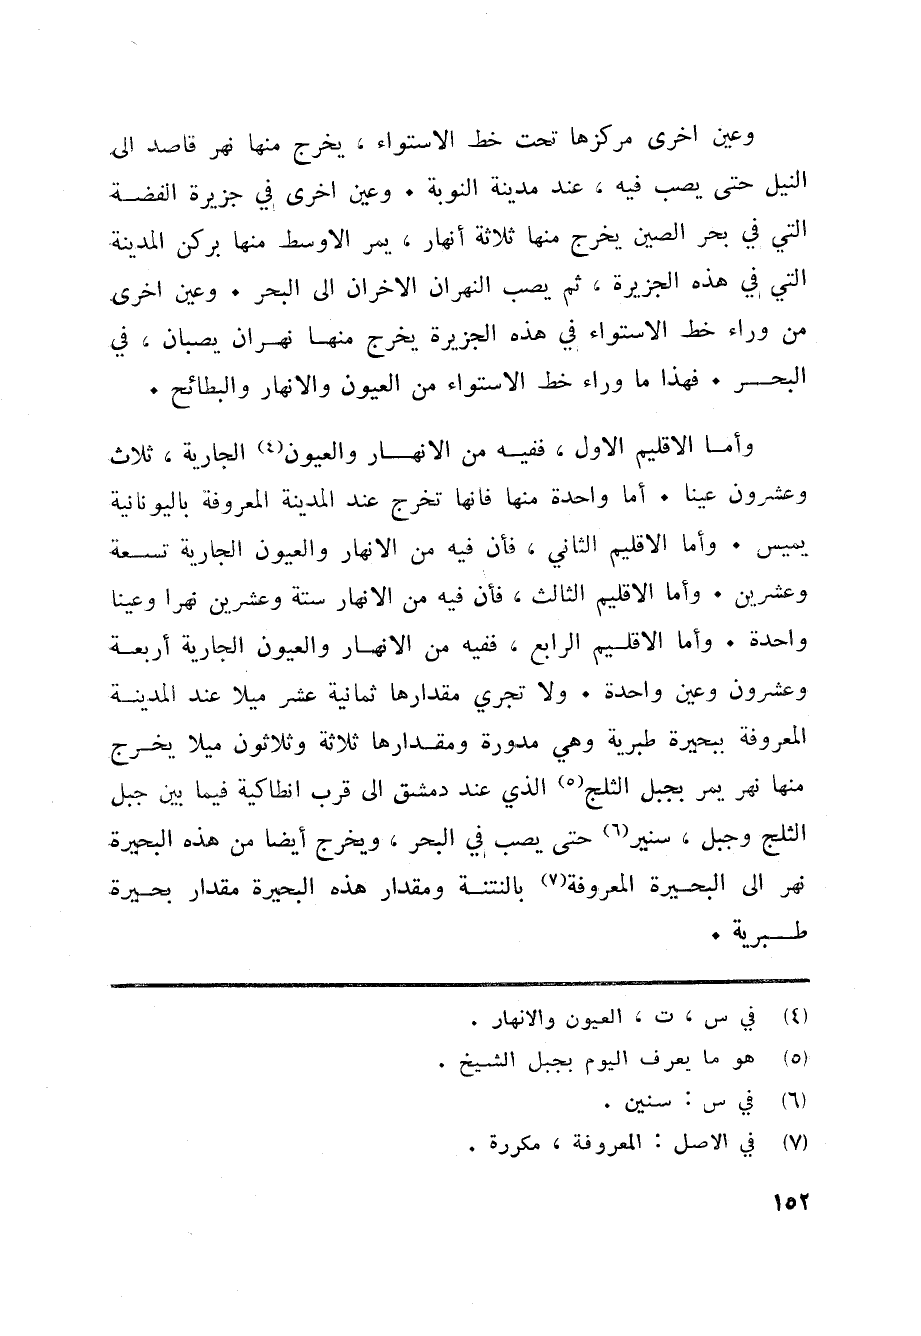 وعين اخرى مركزها تحت خط الاستواء ، يخرج منها نهر قاصد الى
النيل حتى يصب فيه ، عند مدينة النوبة • وعين اخرى في جزيرة الفضة
التي في بحر الصين يخرج منها ثلاثة أنهار ، يمر الاوسط منها بركن المدينة
التي في هذه الجزيرة ، ثم يصب النهران الاخران الى البحر • وعين اخرى
من وراء خط الاستواء في هذه الجزيرة يخرج منها نهران يصبان ، في
البحر • فهذا ما وراء خط الاستواء من العيون والانهار والبطائح •
وأما الاقليم الاول ، ففيه من الانهار والعيون(٤) الجارية ، ثلاث
وعشرون عينا • أما واحدة منها فانها تخرج عند المدينة المعروفة باليونانية
يميس • وأما الاقليم الثاني ، فأن فيه من الانهار والعيون الجارية تسعة
وعشرين • وأما الاقليم الثالث ، فأن فيه من الانهار ستة وعشرين نهرا وعينا
واحدة • وأما الاقليم الرابع ، ففيه من الانهار والعيون الجارية أربعة
وعشرون وعين واحدة • ولا تجري مقدارها ثمانية عشر ميلا عند المدينة
المعروفة ببحيرة طبرية وهي مدورة ومقدارها ثلاثة وثلاثون ميلا يخرج
منها نهر يمر بجبل الثلج(٥) الذي عند دمشق الى قرب انطاكية فيما بين جبل
الثلج وجبل ، سنير(٦) حتى يصب في البحر ، ويخرج أيضا من هذه البحيرة
نهر الى البحيرة المعروفة(٧) بالنتنة ومقدار هذه البحيرة مقدار بحيرة
طبرية •
(٤) في س ، ت ، العيون والانهار .
(٥) هو ما يعرف اليوم بجبل الشيخ .
(٦) في س : سنين .
(٧) في الاصل : المعروفة ، مكررة .
١٥٢